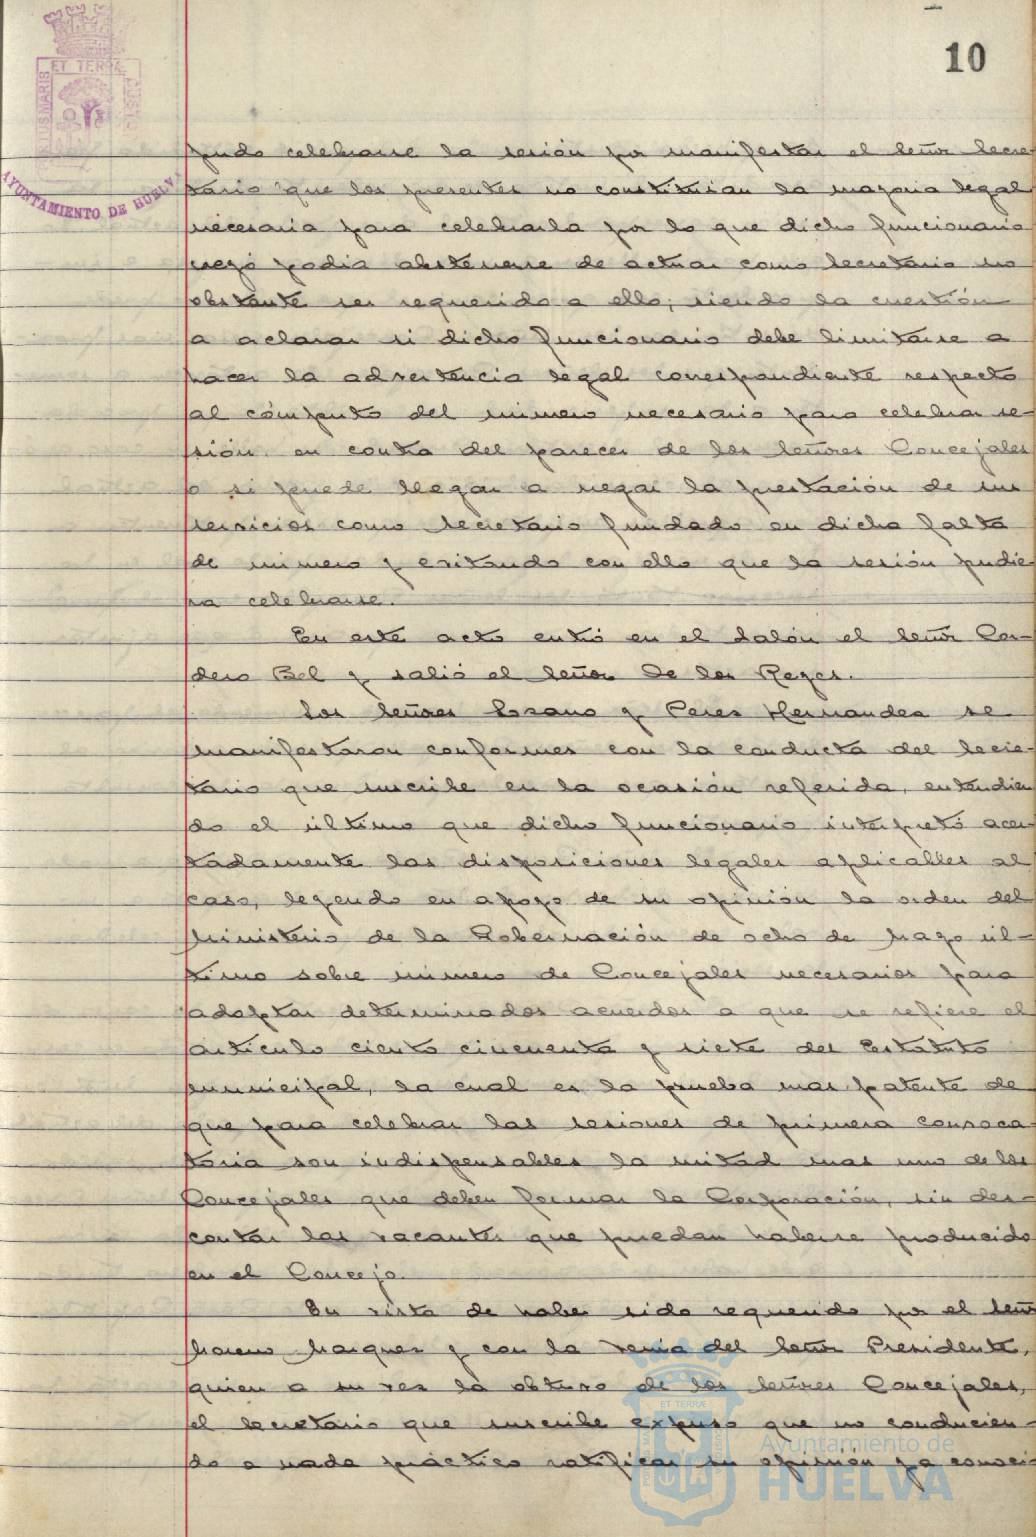 10
ET TERRÆ
AYUNTAMIENTO DE HUELVA
pudo celebrarse la sesión por manifestar el Señor Secre-
tario que los presentes no constituian la mayoria legal
necesaria para celebrarla por lo que dicho funcionario
creyó podia abstenerse de actuar como Secretario no
obstante ser requerido a ello; siendo la cuestión
a aclarar si dicho funcionario debe limitarse a
hacer la advertencia legal correspondiente respecto
al cómputo del número necesario para celebrar se-
sión en contra del parecer de los Señores Concejales
o si puede llegar a negar la prestación de sus
servicios como Secretario fundado en dicha falta
de número y evitando con ello que la sesión pudie-
ra celebrarse.
En este acto entró en el Salón el Señor Cor-
dero Bel y salió el Señor De los Reyes.
Los Señores Lozano y Perez Hernandez se
manifestaron conformes con la conducta del Secre-
tario que suscribe en la ocasión referida, entendien
do el último que dicho funcionario interpretó acer-
tadamente las disposiciones legales aplicables al
caso, leyendo en apoyo de su opinión la orden del
Ministerio de la Gobernación de ocho de Mayo úl-
timo sobre número de Concejales necesarios para
adoptar determinados acuerdos a que se refiere el
artículo ciento cincuenta y siete del Estatuto
municipal, la cual es la prueba mas patente de
que para celebrar las sesiones de primera convoca-
toria son indispensables la mitad mas uno de los
Concejales que deben formar la Corporación, sin des-
contar las vacantes que puedan haberse producido
en el Concejo.
En vista de haber sido requerido por el Señor
Moreno Marquez y con la venia del Señor Presidente,
quien a su vez la obtuvo de los Señores Concejales,
el Secretario que suscribe expuso que no conducien-
do a nada práctico ratificar su opinión ya conoci-
ET TERRÆ
Ayuntamiento de
HUELVA